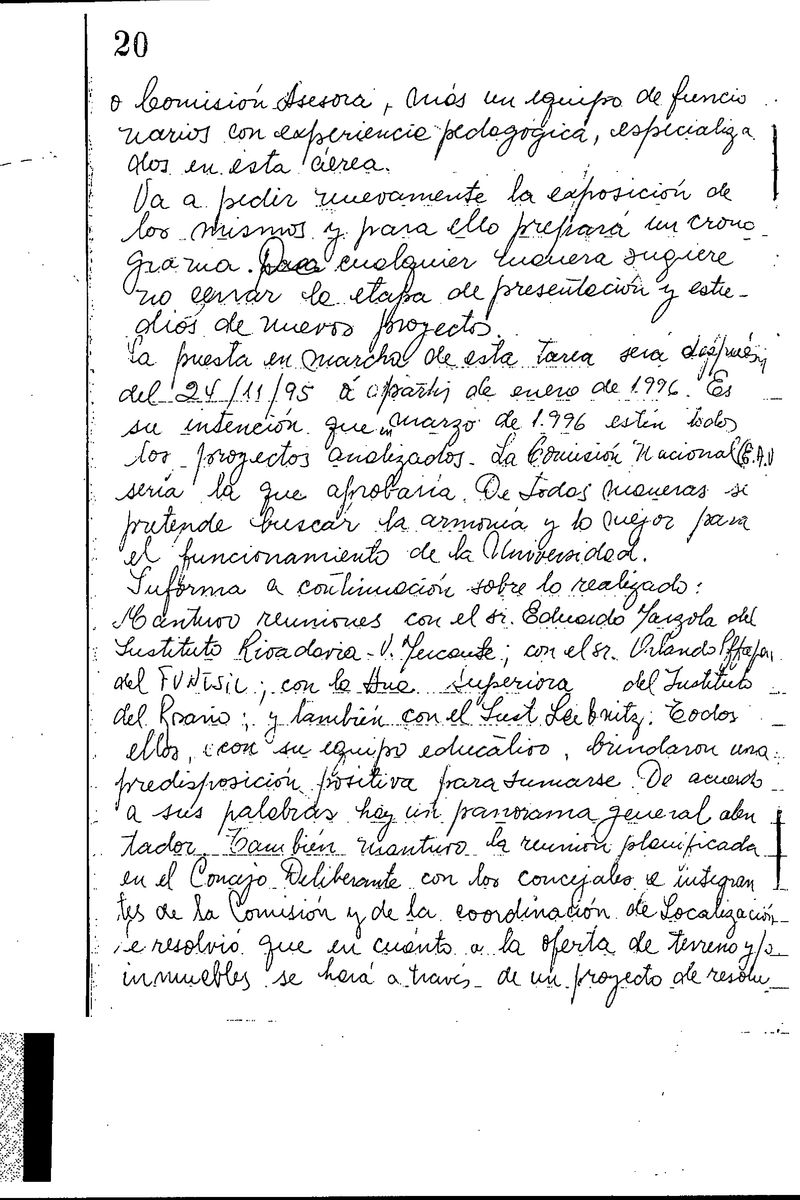 20
o Comisión Asesora, más un equipo de funcio
narios con experiencia pedagógica, especializa
dos en esta áerea.
Va a pedir nuevamente la exposición de
los mismos y para ello prepará un crono
grama. cualquier manera sugiere
no cerrar la etapa de presentación y estu-
dios de nuevos proyectos.
La puesta en marcha de esta tarea será después
del 24/11/95 á a partir de enero de 1.996. Es
su intención que en marzo de 1.996 estén todos
los proyectos analizados. La Comisión Nacional (E.A.U
sería la que aprobaría. De todas maneras se
preténde buscar la armonía y lo mejor para
el funcionamiento de la Universidad.
Informa a continuación sobre lo realizado:
Mantuvo reuniones con el sr. Eduardo del
Instituto Rivadavia - V. Mercante; con el sr. Orlando
del ; con la Hna superiora del Instituto
del Rosario; y también con el Inst Leibnitz. Todos
ellos, con su equipo educativo, brindaron una
predisposición positiva para sumarse. De acuerdo
a sus palabras hay un panorama general alen
tador. También mantuvo la reunión planificada
en el Concejo Deliberante con los concejales e integran
tes de la Comisión y de la coordinación de Localización
se resolvió que en cuánto a la oferta de terreno y/o
inmuebles se hará a través de un proyecto de resolu